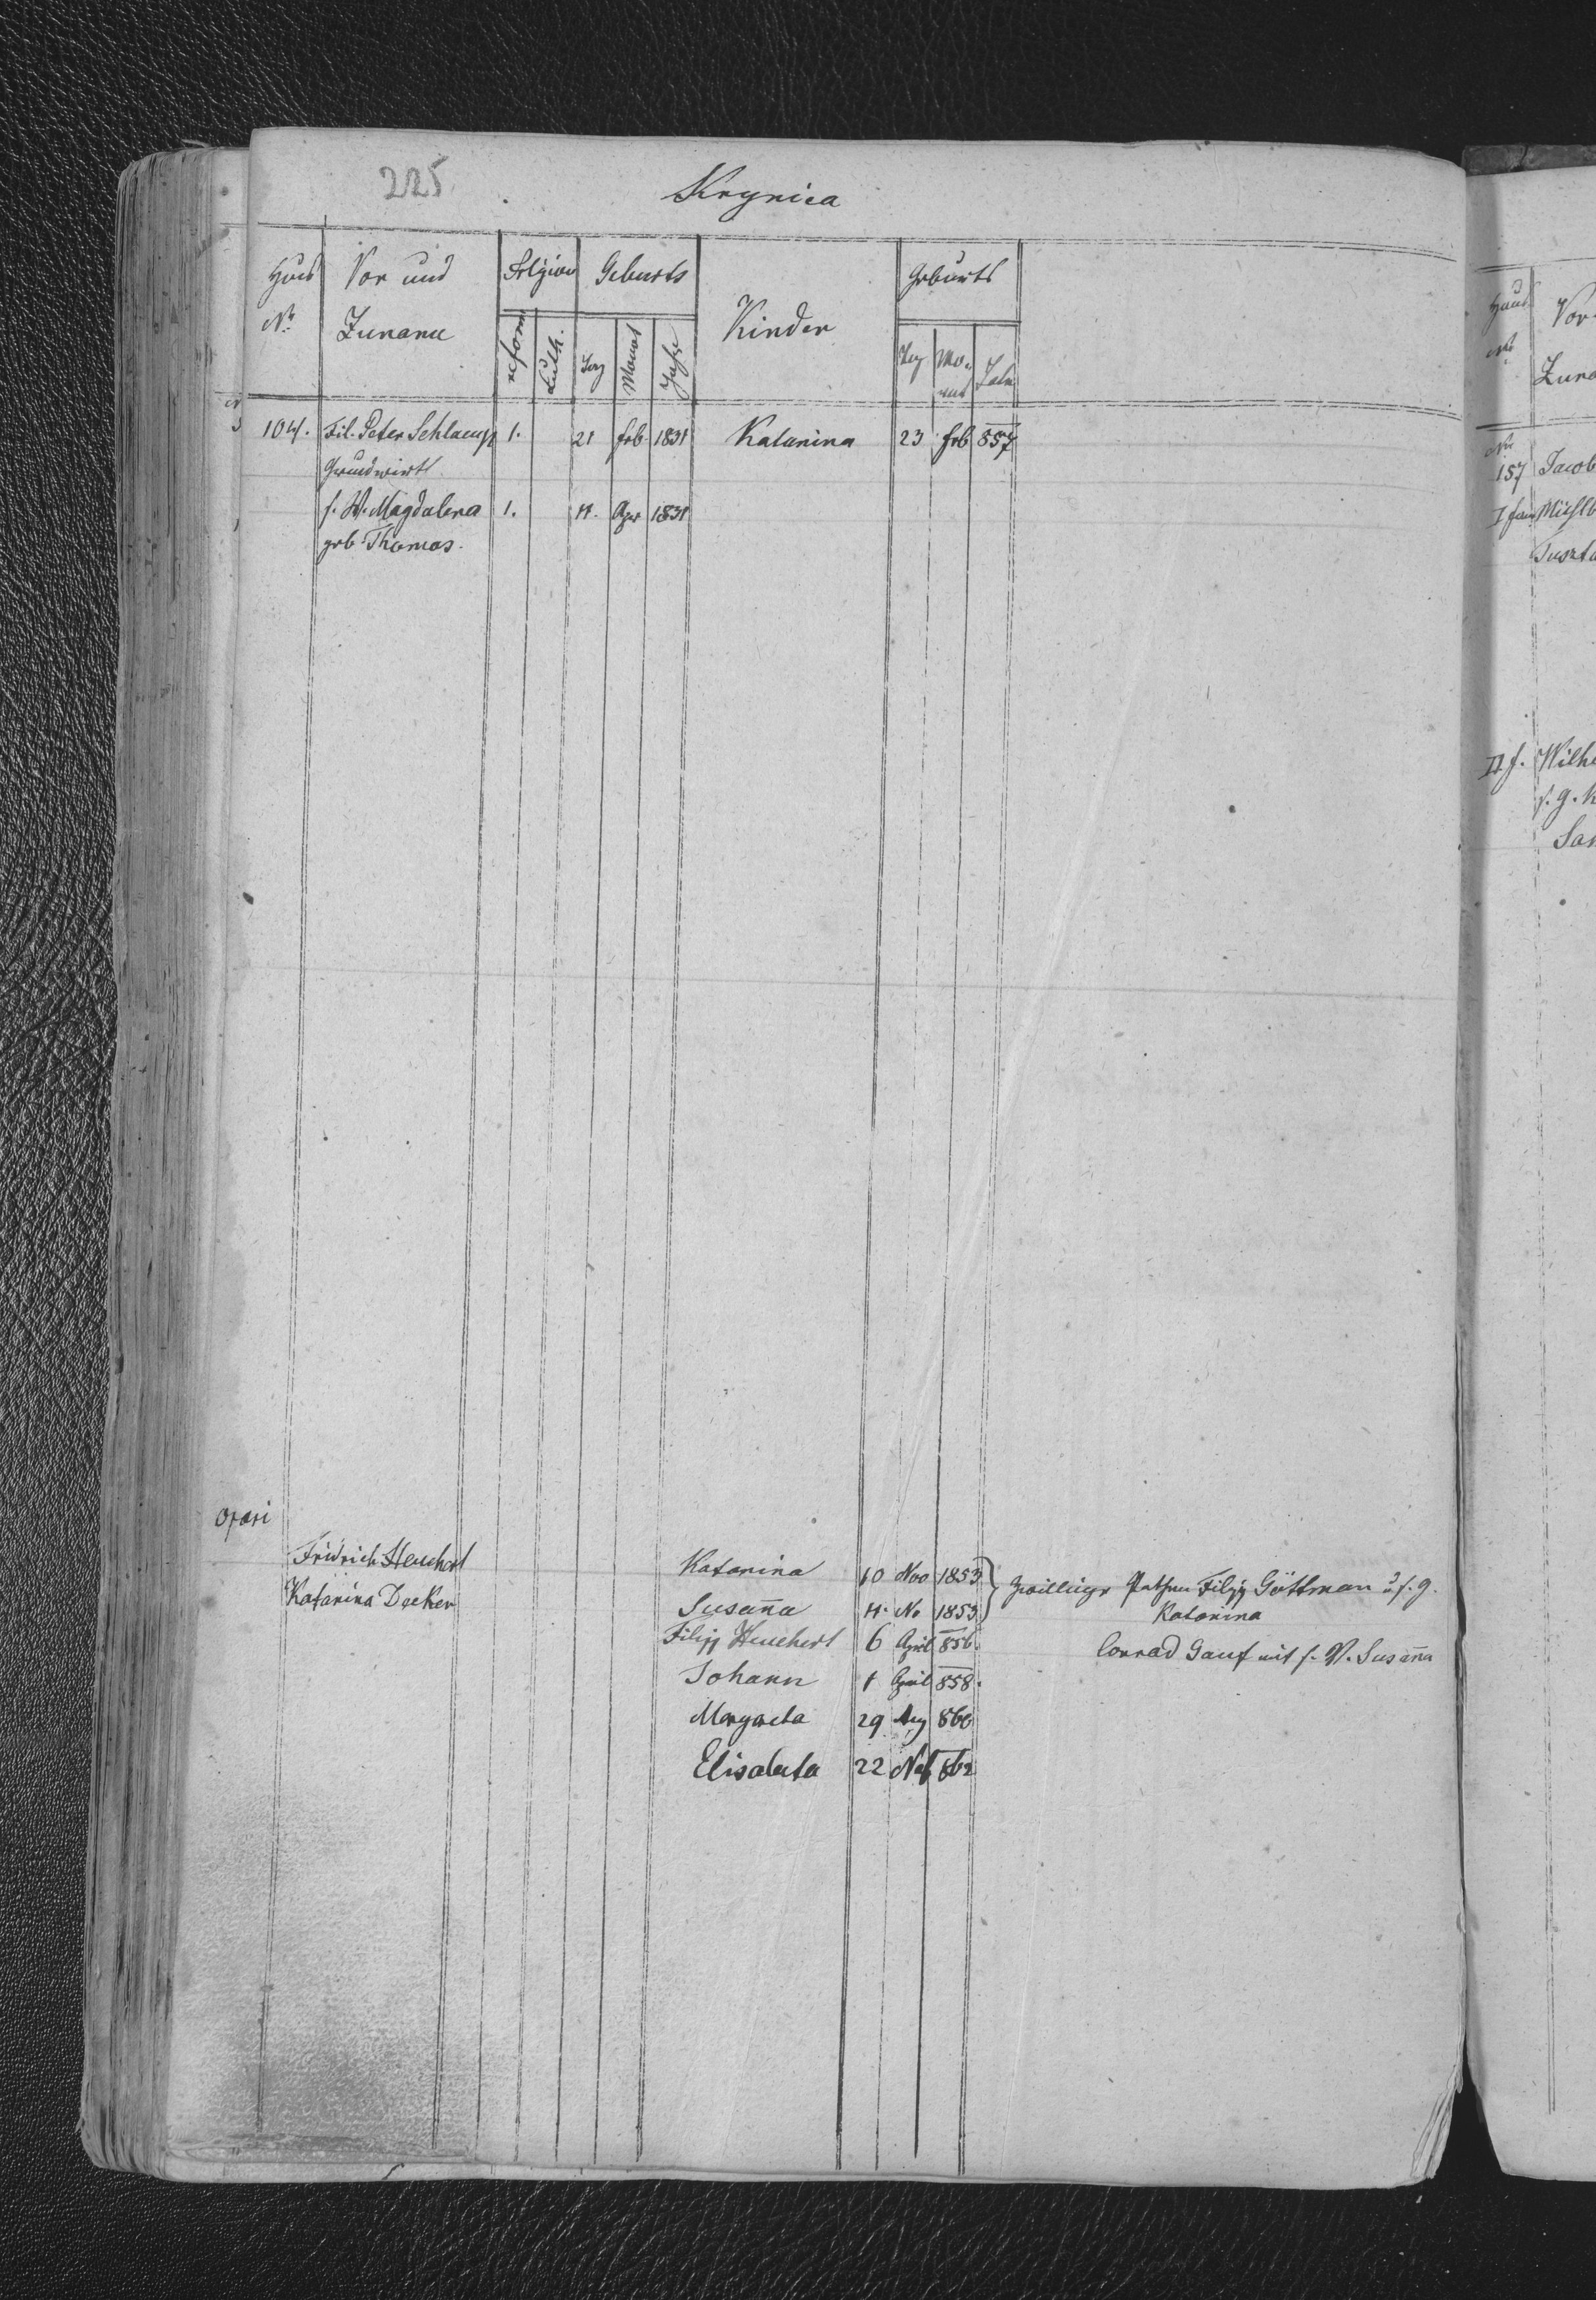 225
Krynica
Haus Vor und Religion Geburts Kinder Geburts
No Zuname reform Luth. Tag Monat Jahr Tag Monat Jahr
104. Fil. Peter Schlamp 1. 21 Feb 1831 Katarina 23 Feb 857
Grundwirt
s. W. Magdalena 1. 11. Apr 1831
geb. Thomas.
Opari
Fridrich Heuchert Katarina 10 Nov 1853 Zwillinge Pathen Filipp Göttman u s. g.
Katarina Decker Susana 11. No 1853 Katarina
Filipp Heuchert 6 April 856. Conrad Gauf mit s. W. Susana
Johann 1 April 858.
Margareta 29 Aug 860
Elisabeta 22 862
Haus Vor
No Zuna
No
157 Jacob
I fam
II f. Wilhe
s. g. K